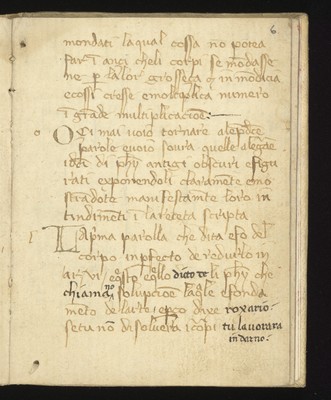 6
mondati la qual cossa no potea
far i anci che li corpi se mondasse
ne p la lor grosseça  inmodicia
e cossi cresse e moltiplica numero
i grade multiplicacioe
mai voio tornare a le pdce
parole e voio soura quelle alegare
de phy antigi obscuri e figu
rati exponendoli claramente e mo
stradote manifestamte loro in
tendimeti i la reteta scripta
La pma parolla che dita e so del
corpo inpfecto de redurlo in
ar vi e qsto e qllo dicto te li phy che
chiama no solupcioe la qle e fonda
meto de larte e pço dixe roxario
se tu no disolvera i corpi tu lavorara
in darno